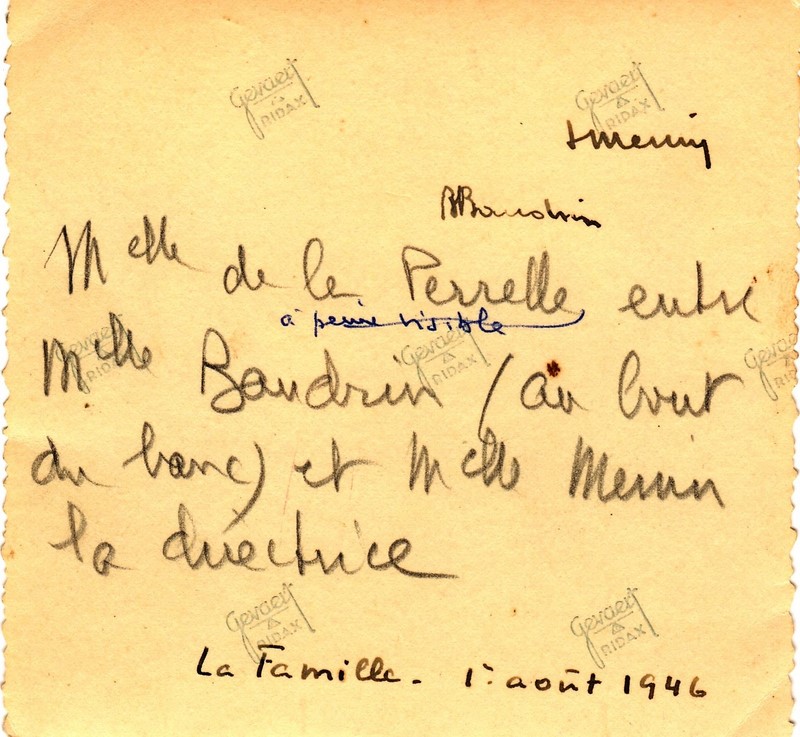 Gevaert RIDAX
Gevaert RIDAX
BBaudrin
Melle de la Perrelle entre
à peine visible
Melle Baudrin (au bout
Gevaert RIDAX
Gevaert RIDAX
du banc) et Melle Menin
la directrice
Gevaert RIDAX
Gevaert RIDAX
La Famille. 1: août 1946